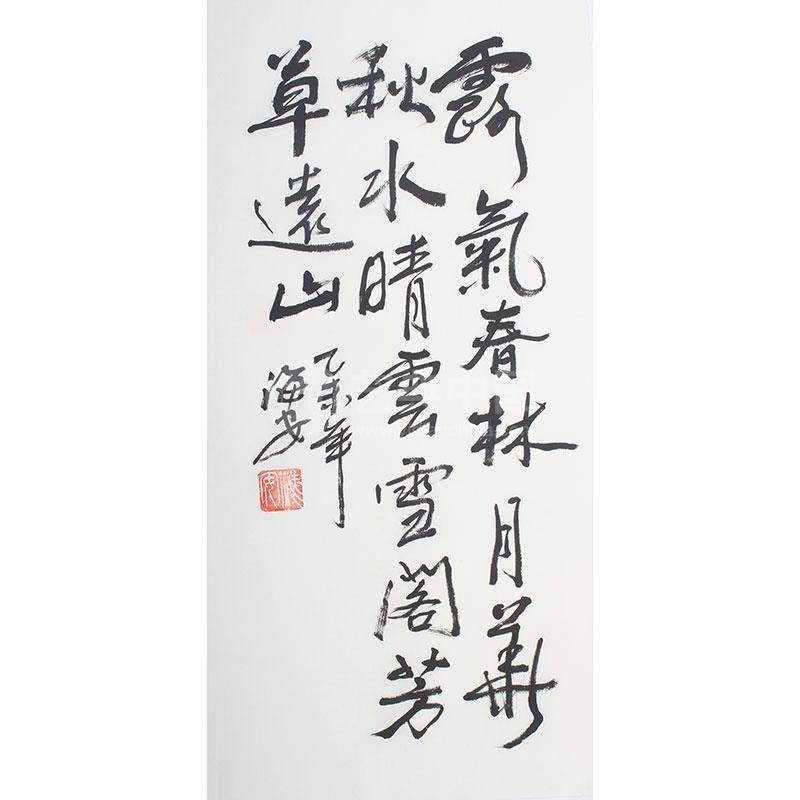 露氣春林月華
秋水晴雲雪閣芳
草遠山
乙未年
海安